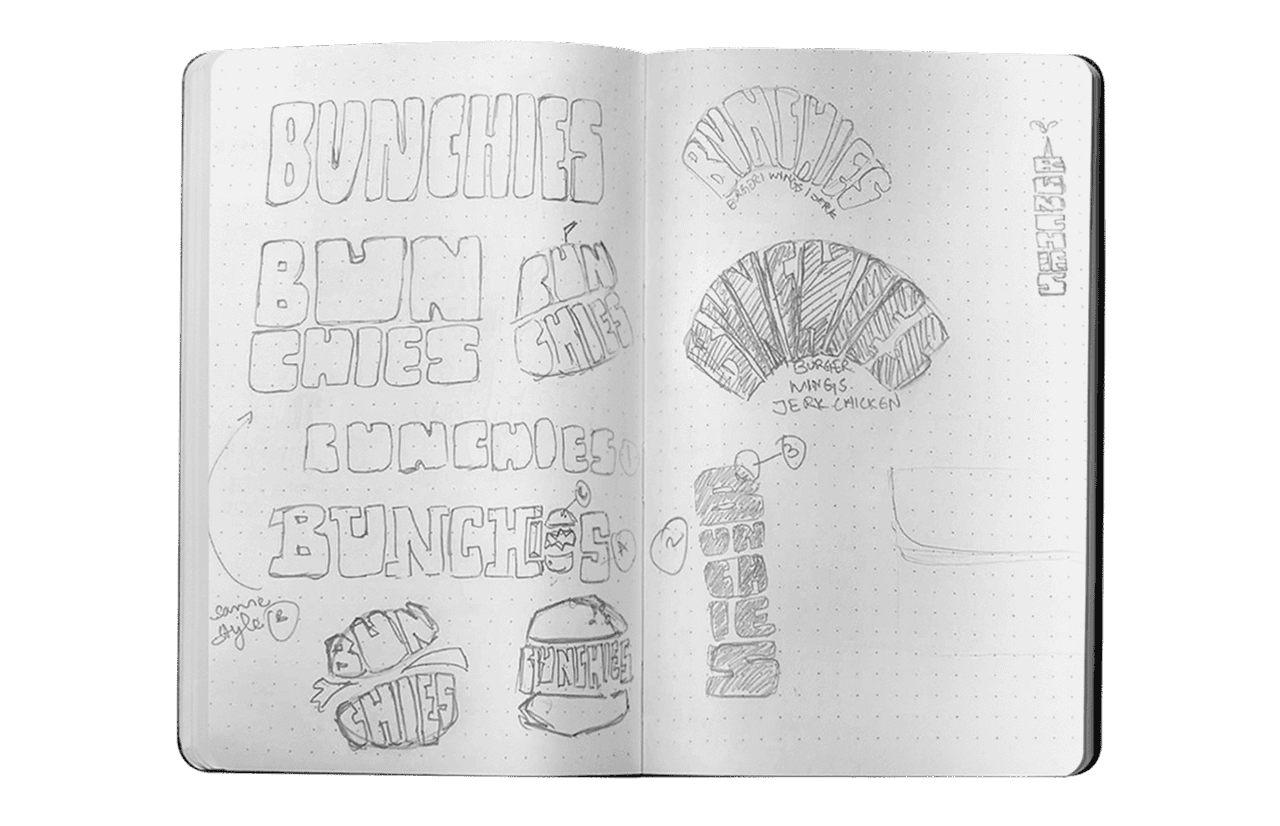 BUNCHIES
BUN
CHIES
BUN
CHIES
BUNCHIES
1
BUNCHIES
4
same
style
BUN
CHIES
BUNCHIES
BUNCHIES
BURGER | WINGS | JERK
BUNCHIES
BURGER
WINGS
JERK CHICKEN
3
2
B
UN
CH
IE
S